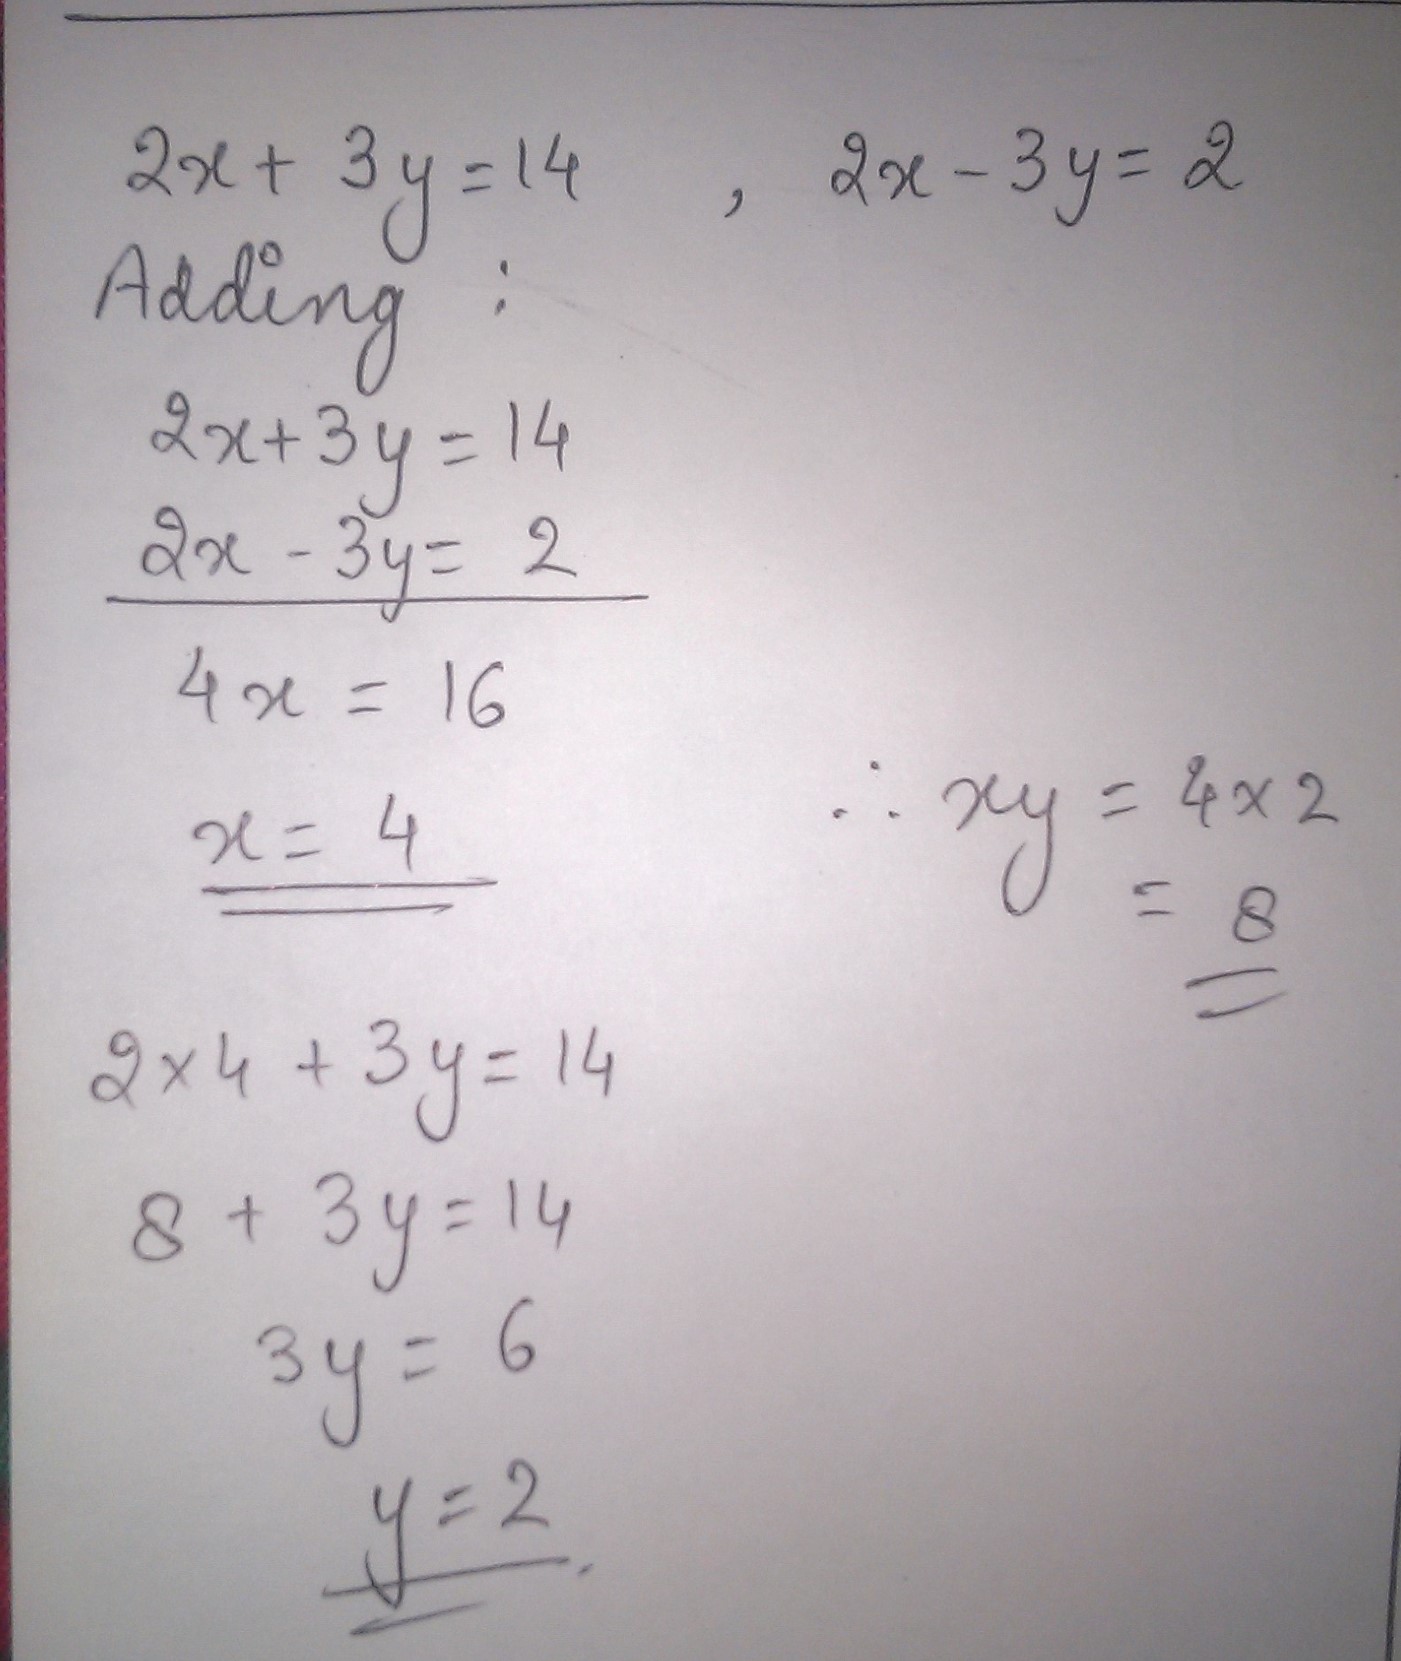 2x + 3y = 14 , 2x - 3y = 2
Adding :
2x + 3y = 14
2x - 3y = 2
4x = 16
x = 4
2 × 4 + 3y = 14
8 + 3y = 14
3y = 6
y = 2
∴ xy = 4 × 2
= 8